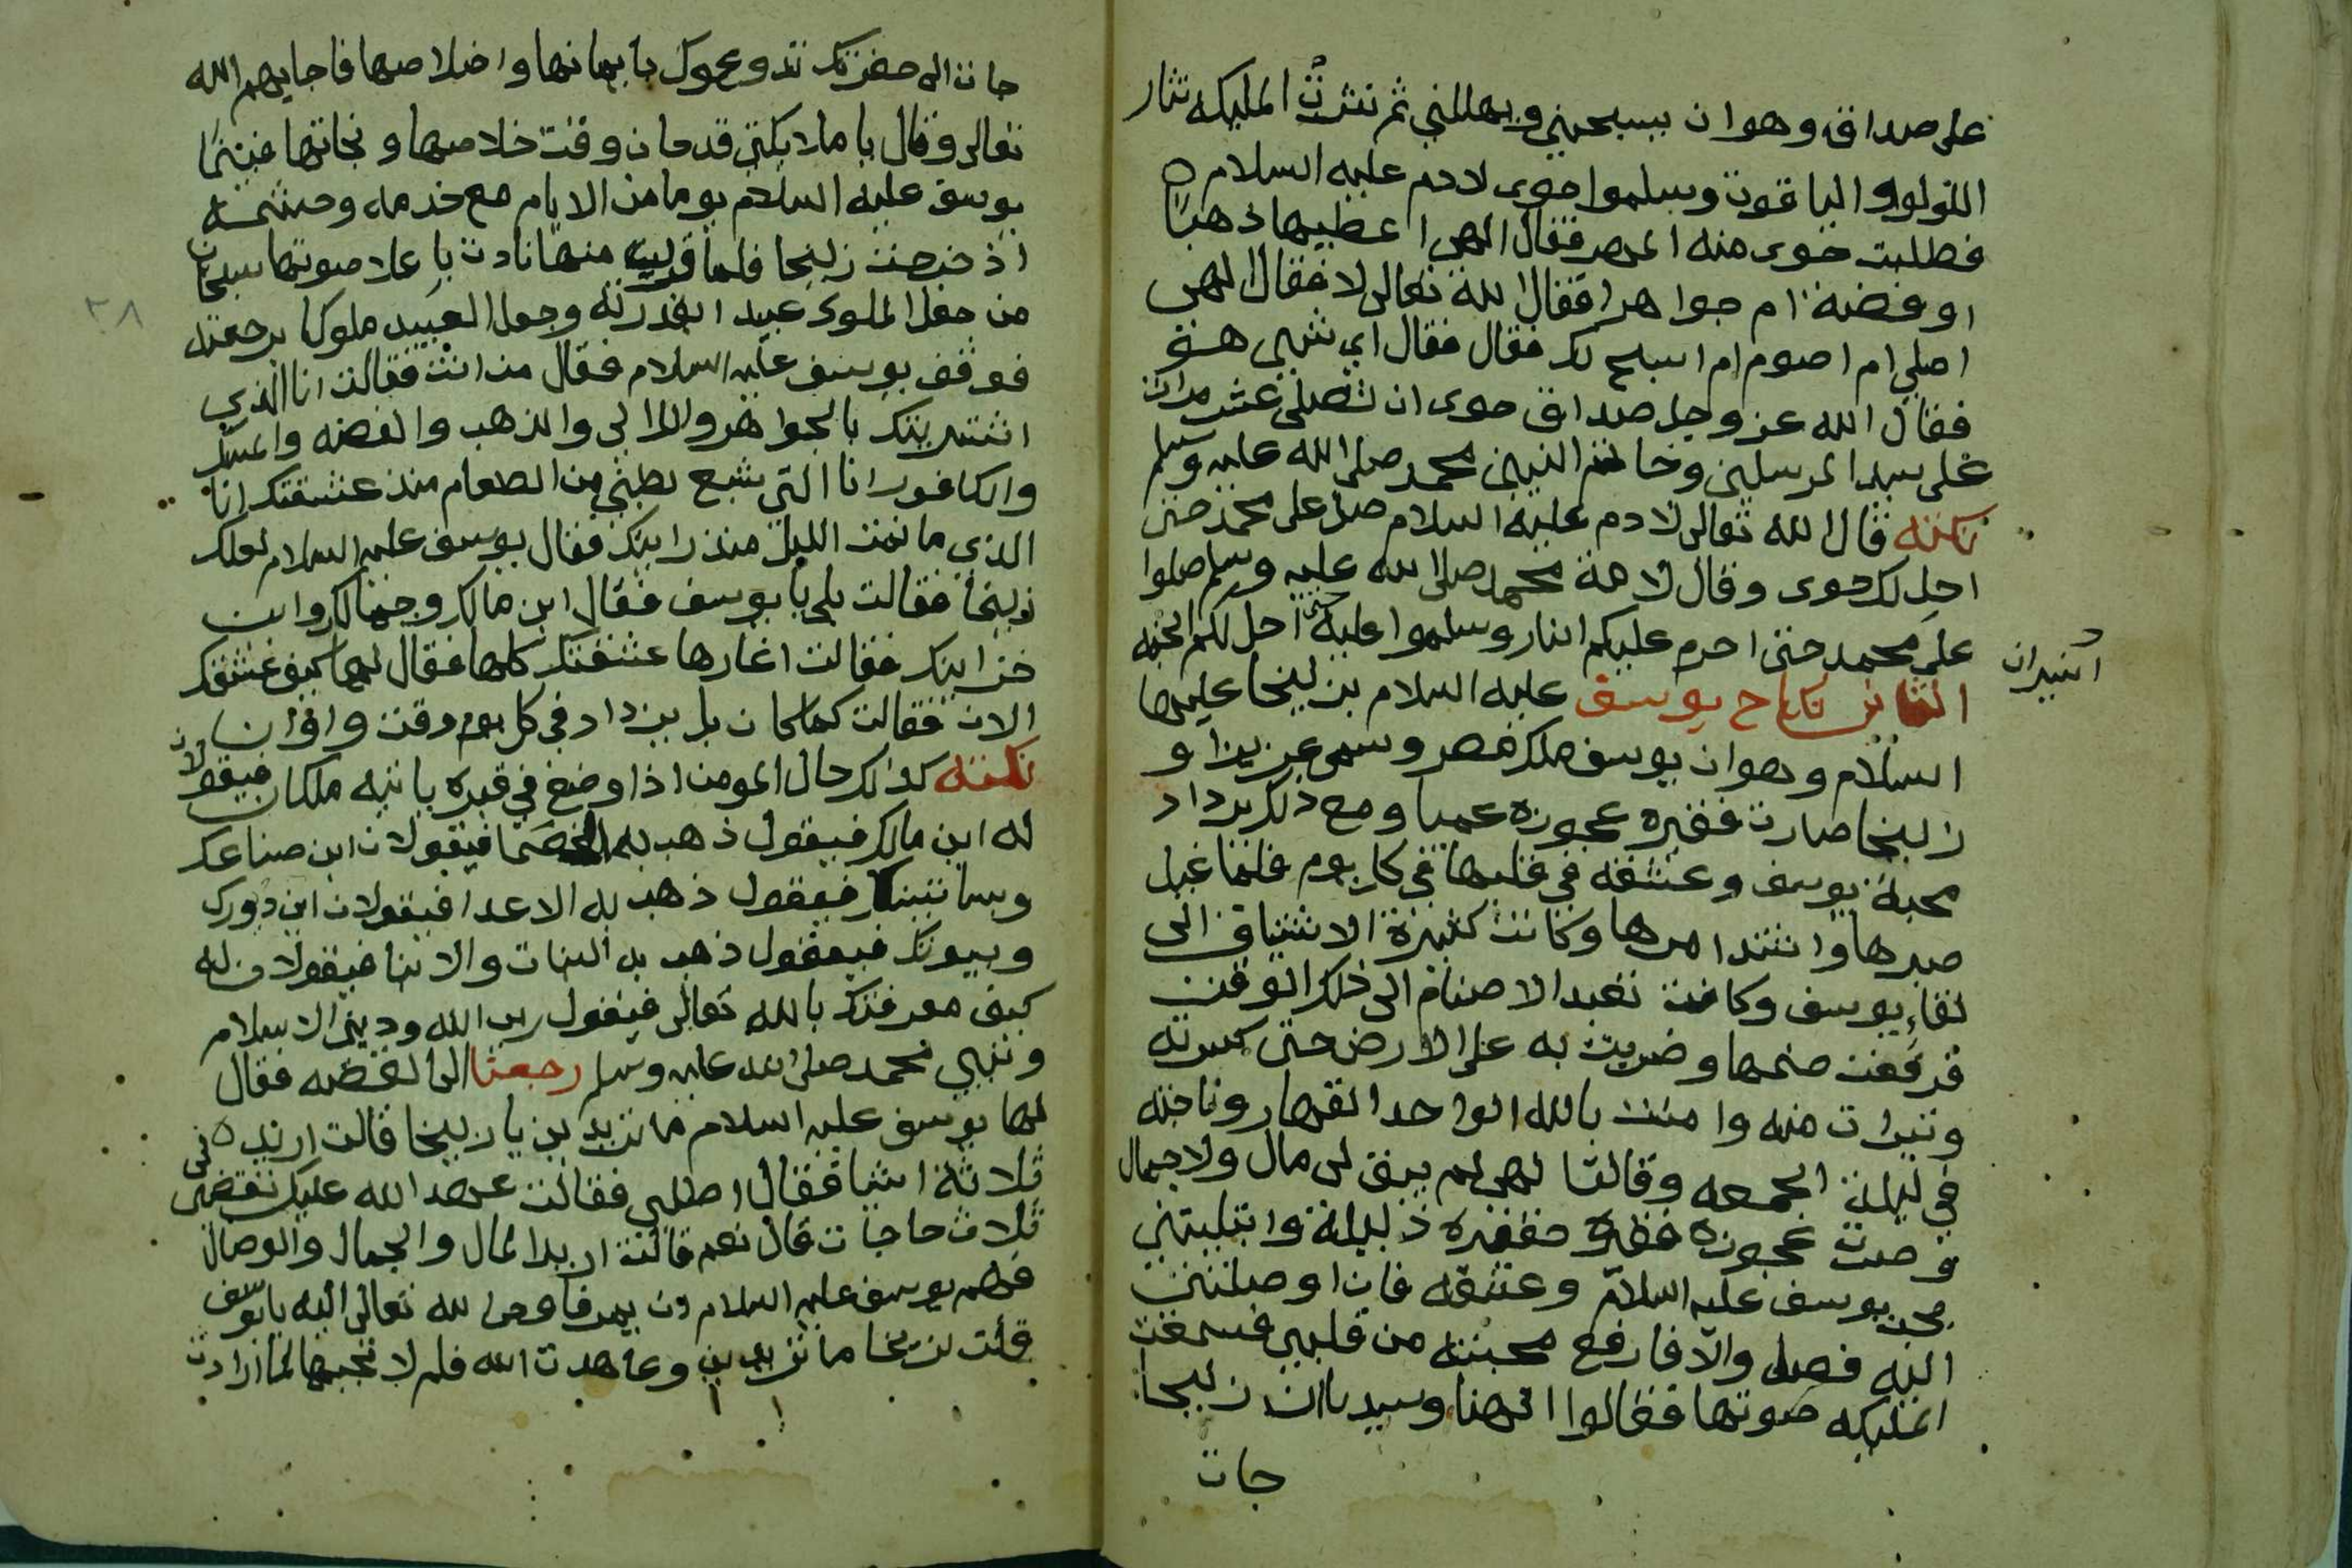 على صداق وهو ان يسبحني ويهللني ثم نثرت المليكه نثار
اللولو والياقوت وسلموا حوى لادم عليه السلام
فطلبت حوى منه المهر فقال الهي اعطيها ذهبا
او فضة ام جواهرا فقال الله تعالى لا فقال الهى
اصلي ام اصوم ام اسبح لك فقال فقال اي شيى هو
فقال الله عز وجل صداق حوى ان تصلى عشر مرات
على سيد المرسلين وخاتم النبين محمد صلى الله عليه وسلم
نكتة قال الله تعالى لادم عليه السلام صل على محمد حتى
احل لك حوى وقال لامة محمد صلى الله عليه وسلم صلوا
على محمد حتى احرم عليكم النار وسلموا عليه حتى احل لكم الجنه
النيران
الثانى نكاح يوسف عليه السلام بزليخا عليهما
السلام وهو ان يوسف ملك مصر وسمى عزيزا و
زليخا صارت فقيره عجوزه عميا ومع ذلك يزداد
محبة يوسف وعشقه في قلبها في كل يوم فلما عيل
صبرها واشتد امرها وكانت كثيرة الاشتياق الى
لقاء يوسف وكانت تعبد الاصنام الى ذلك الوقت
فرفعت صنمها وضربت به على الارض حتى كسرته
وتبرات منه وامنت بالله الواحد القهار وناجته
في ليلة الجمعه وقالت الهى لم يبق لى مال ولا جمال
وصرت عجوزه حقيره فقيره ذليلة وابتليتني
بحب يوسف عليه السلام وعشقه فان اوصلتني
اليه فصل والا فارفع محبته من قلبي فسمعت
المليكه صوتها فقالوا الهنا وسيدنا ان زليخا
جات
جات الى حضرتك تدعوك بايمانها واخلاصها فاجابهم الله
تعالى وقال يا ملايكتى قد حان وقت خلاصها ونجاتها فبينما
يوسف عليه السلام يوما من الايام مع خدمه وحشمه
اذ خرجت زليخا فلما قرب منها نادت باعلا صوتها سبحان
من جعل الملوك عبيدا بقدرته وجعل العبيد ملوكا برحمته
فوقف يوسف عليه السلام فقال من انت فقالت انا الذي
اشتريتك بالجواهر والالي والذهب والفضه والمسك
والكافور انا التي شبع بطني من الطعام منذ عشقتك انا
الذي ما نمت الليل منذ رايتك فقال يوسف عليه السلام لعلك
زليخا فقالت بلى يا يوسف فقال اين مالك وجمالك واين
خزاينك فقالت اغارها عشقك كلها فقال لها كيف عشقك
الان فقالت كما كان بل يزداد في كل يوم وقت واوان
نكتة كذلك حال المومن اذا وضع في قبره ياتيه ملكان فيقولان
له اين مالك فيقول ذهب به الخصما فيقولان اين ضياعك
وبساتينك فيقول ذهب به الاعدا فيقولان اين دورك
وبيوتك فيقول ذهب به البنات والابنا فيقولان له
كيف معرفتك بالله تعالى فيقول ربي الله وديني الاسلام
ونبيي محمد صلى الله عليه وسلم رجعنا الى القصه فقال
لها يوسف عليه السلام ما تريدين يا زليخا قالت اريد
ثلاثة اشيا فقال اطلبي فقالت عهد الله عليك تقضي لى
ثلاث حاجات قال نعم قالت اريد المال والجمال والوصال
فهم يوسف عليه السلام ان يمر فاوحى الله تعالى اليه يا يوسف
قلت لزليخا ما تريدين وعاهدت الله فلم لا تجيبها لما ارادت
٢٨